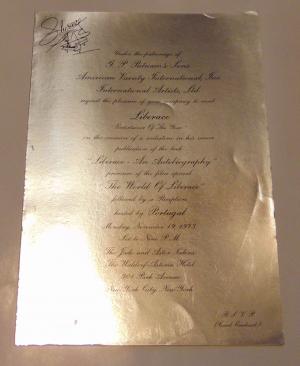 Under the patronage of
G. P. Putnam's Sons
American Variety International, Inc.
International Artists, Ltd.
request the pleasure of your company to meet
Liberace
Entertainer Of The Year
on the occasion of a
publication of the book
"Liberace - An Autobiography"
premiere of the film
"The World Of Liberace"
followed by a Reception
hosted by Portugal
Monday, November 19, 1973
Six to Nine P.M.
The Jade and Astor
The Waldorf-Astoria Hotel
301 Park Avenue
New York City, New York
R.S.V.P.